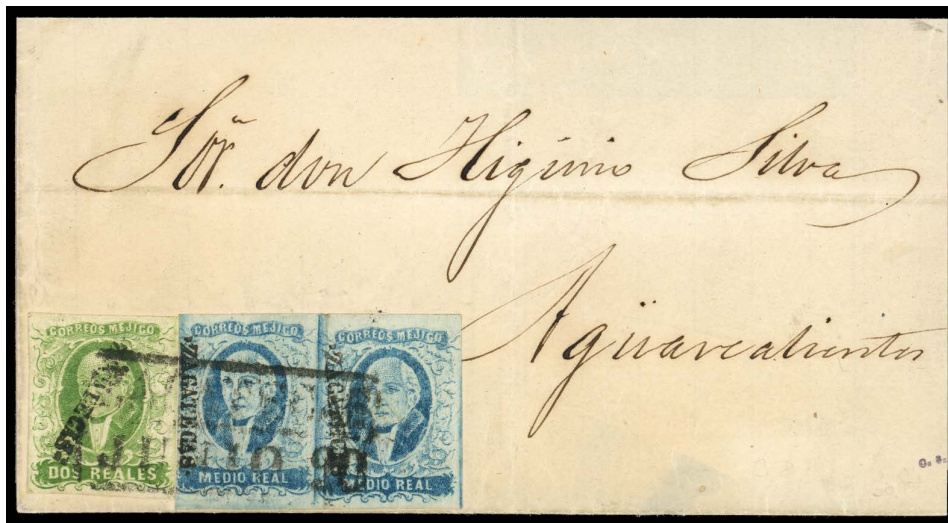 Sor. don Higinio Silva
Aguascalientes
CORREOS MEJICO
DOS REALES
CORREOS MEJICO
ZACATECAS
MEDIO REAL
CORREOS MEJICO
ZACATECAS
MEDIO REAL